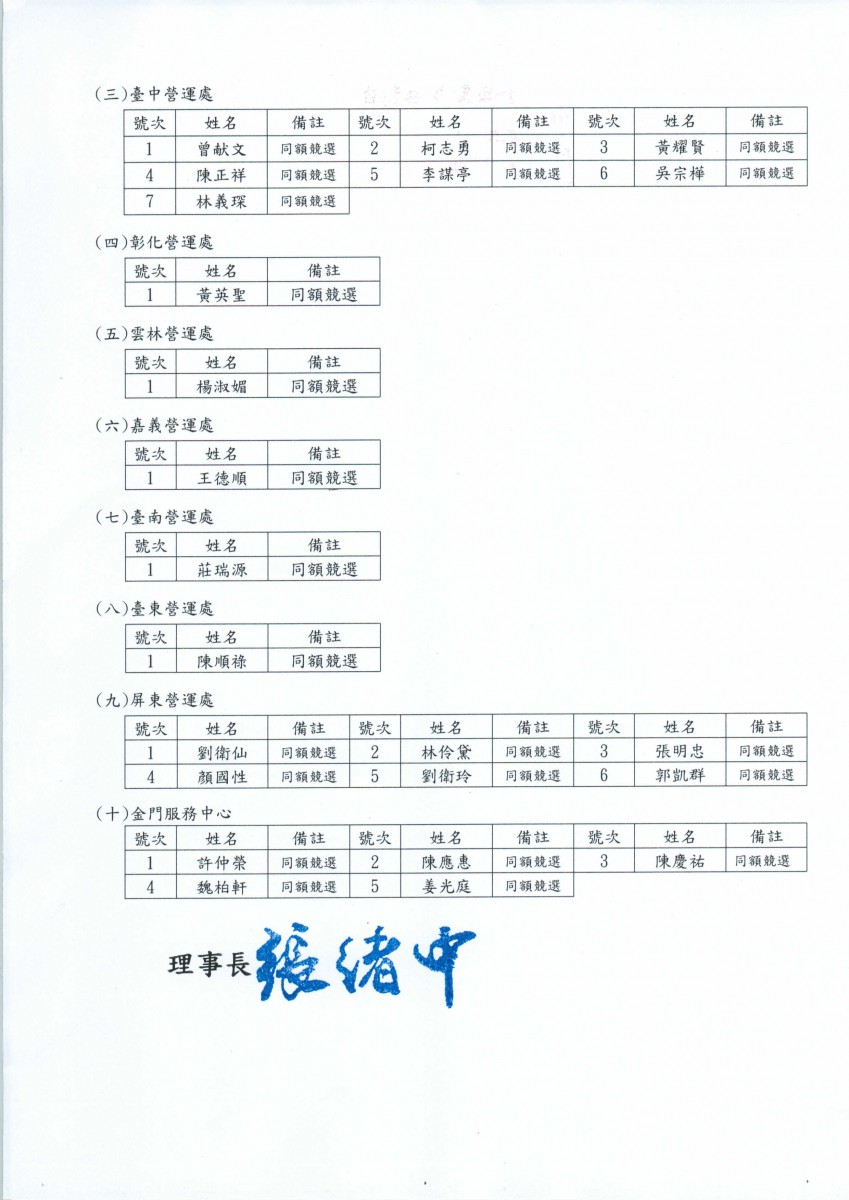 (三)臺中營運處
號次 姓名 備註 號次 姓名 備註 號次 姓名 備註
1 曾献文 同額競選 2 柯志勇 同額競選 3 黃耀賢 同額競選
4 陳正祥 同額競選 5 李謀亭 同額競選 6 吳宗樺 同額競選
7 林義琛 同額競選
(四)彰化營運處
號次 姓名 備註
1 黃英聖 同額競選
(五)雲林營運處
號次 姓名 備註
1 楊淑媚 同額競選
(六)嘉義營運處
號次 姓名 備註
1 王德順 同額競選
(七)臺南營運處
號次 姓名 備註
1 莊瑞源 同額競選
(八)臺東營運處
號次 姓名 備註
1 陳順祿 同額競選
(九)屏東營運處
號次 姓名 備註 號次 姓名 備註 號次 姓名 備註
1 劉衛仙 同額競選 2 林伶黛 同額競選 3 張明忠 同額競選
4 顏國性 同額競選 5 劉衛玲 同額競選 6 郭凱群 同額競選
(十)金門服務中心
號次 姓名 備註 號次 姓名 備註 號次 姓名 備註
1 許仲榮 同額競選 2 陳應惠 同額競選 3 陳慶祐 同額競選
4 魏柏軒 同額競選 5 姜光庭 同額競選
理事長 張緒中